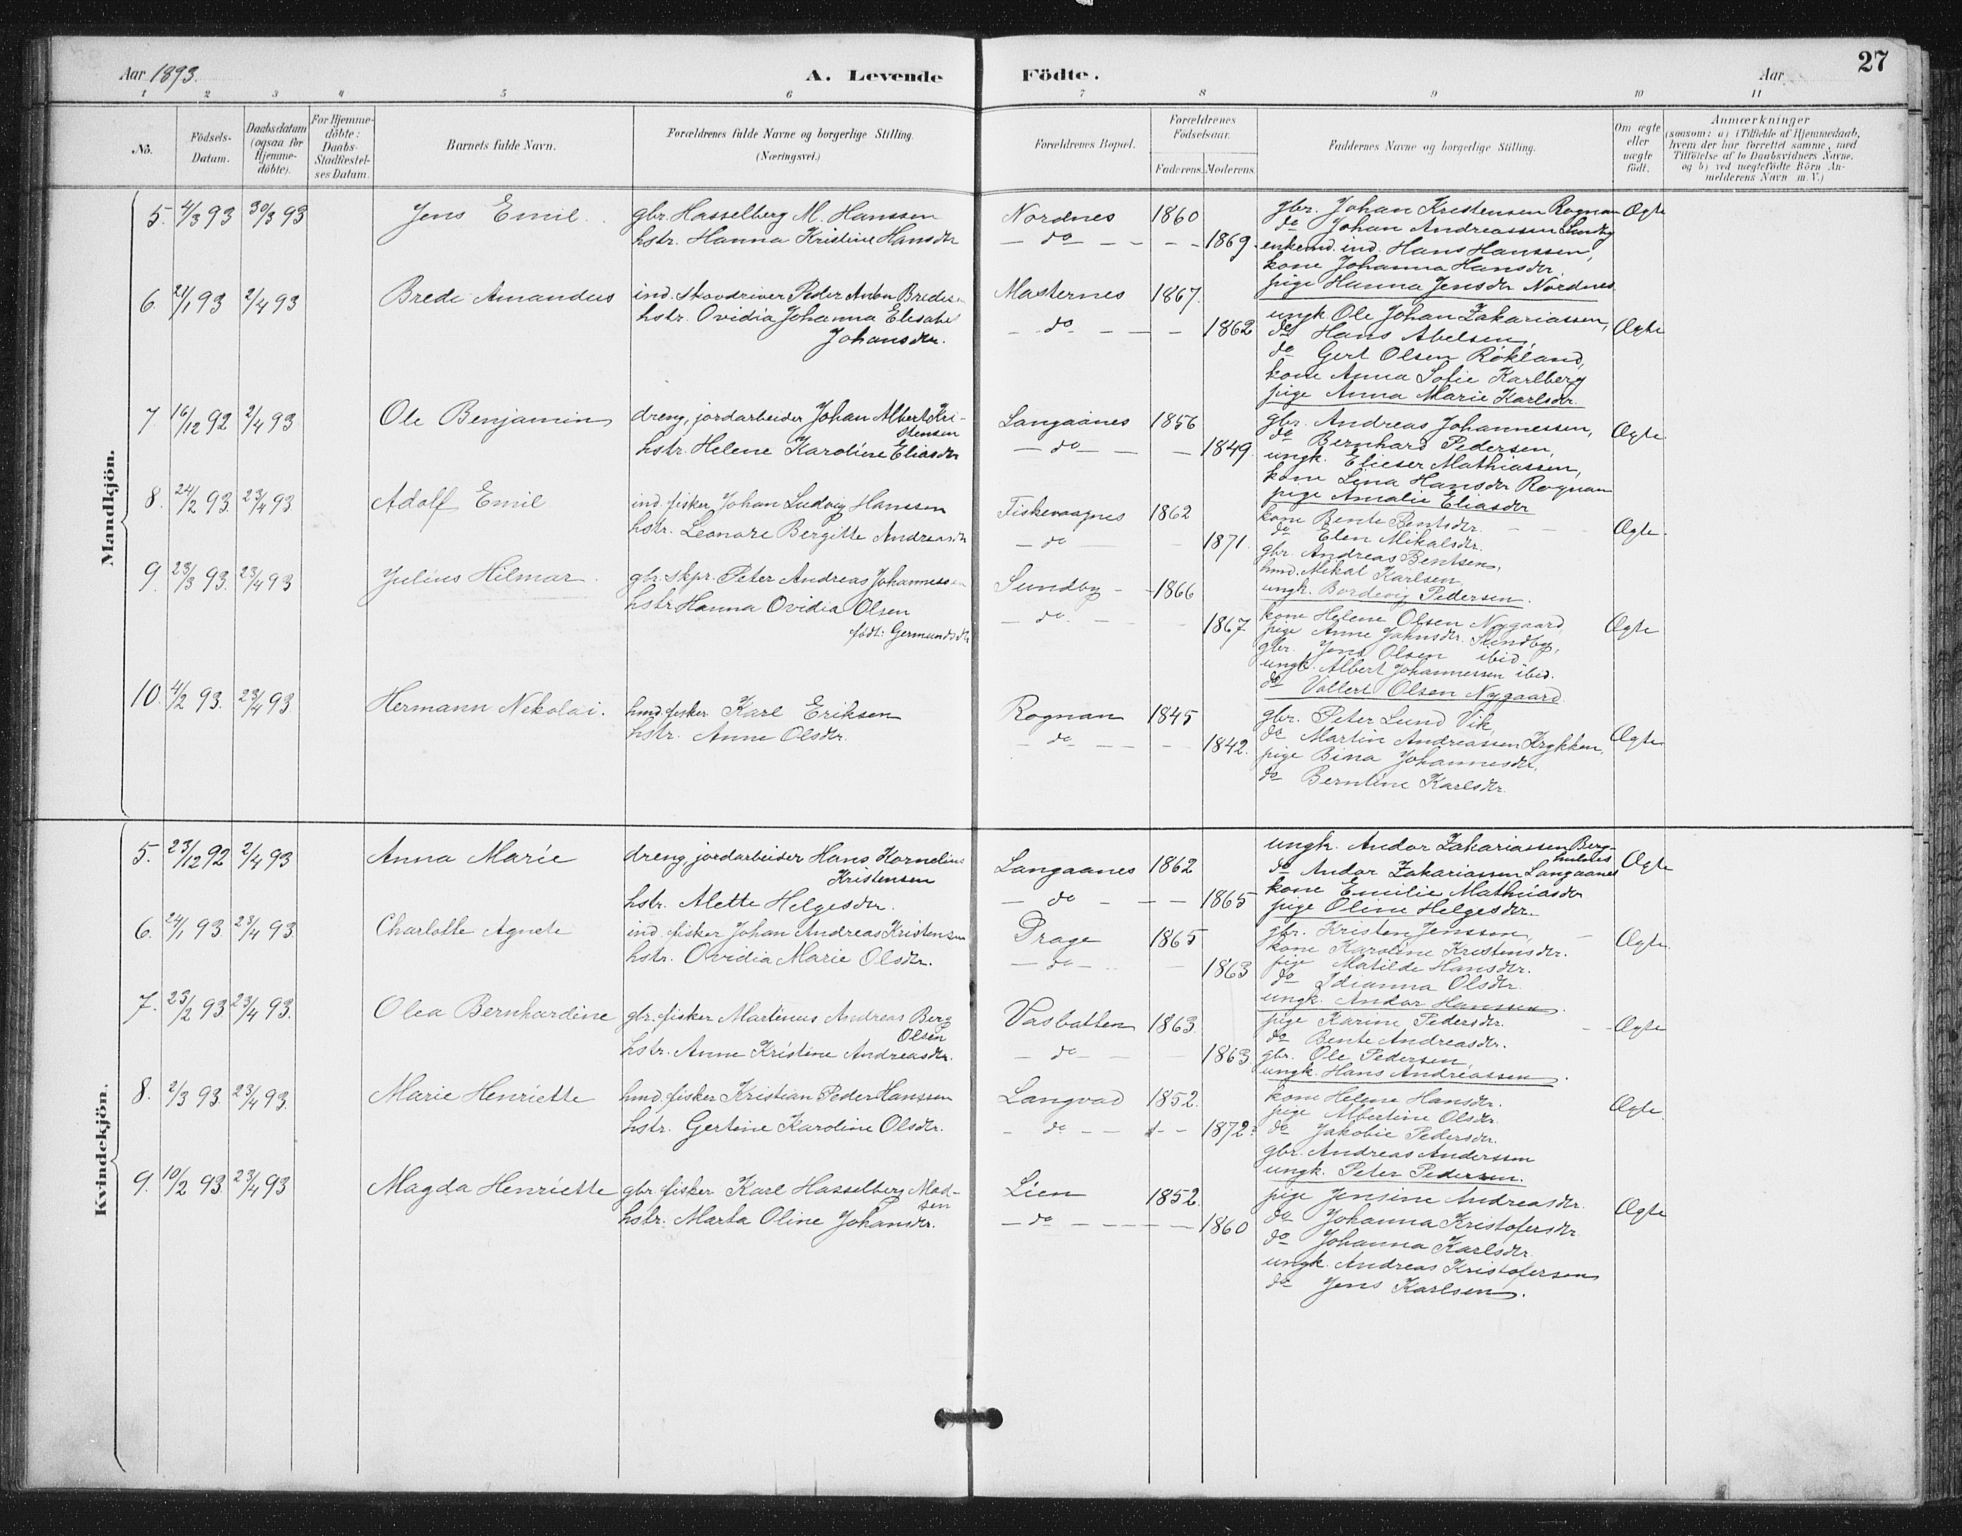 Aar 1893.
A. Levende Födte.
Aar
27
1 2 3 4 5 6 7 8 9 10 11
Nö.
Födsels-
Datum.
Daabsdatum
(ogsaa for
Hjemme-
döbte).
For Hjemme-
döbte:
Daabs-
Stadfæstel-
ses Datum.
Barnets fulde Navn.
Forældrenes fulde Navne og borgerlige Stilling.
(Næringsvei.)
Forældrenes Bopæl.
Forældrenes
Födselsaar.
Faderens. Moderens.
Faddernes Navne og borgerlige Stilling.
Om ægte
eller
uægte
födt.
Anmærkninger
(saasom: a) i Tilfælde af Hjemmedaab,
hvem der har forrettet samme, med
Tilföielse af to Daabsvidners Navne,
og b) ved uegtefödte Börn An-
melderens Navn m. V.)
Mandkjön.
5. 4/3 93 30/3 93 Jens Emil.
gbr. Hasselberg M. Hanssen
hstr. Hanna Kristine Hansdtr
Nordnes 1860
— do — 1869.
gbr. Johan Kristensen Rognan
do Johan Andreassen Sundby
enkemd. ind. Hans Hanssen,
kone Johanna Hansdr.
pige Hanna Jensdr Nordnes
Ægte
6. 21/1 93 2/4 93 Brede Amandus
ind. skovdriver Peder Anbn Bredes
hstr. Ovidia Johanna Elisabe
Johansdr.
Masternes 1867.
— do — 1862
ungk Ole Johan Zakariassen,
do Hans Abelsen,
do Gert Olsen Rökland,
kone Anna Sofie Karlberg
pige Anna Marie Karlsdr.
Ægte
7. 16/12 92 2/4 93 Ole Benjamin
dreng, jordarbeider Johan Albert Kri-
stensen
hstr. Helene Karoline Eliasdr
Langaanes 1856
— do — 1849.
gbr. Andreas Johannessen,
do Bernhard Pedersen,
ungk. Elieser Mathiassen,
kone Lina Hansdr Rognan
pige Amalie Eliasdr
Ægte
8. 24/2 93. 23/4 93. Adolf Emil
ind. fisker Johan Ludvig Hanssen
hstr. Leonore Bergitte Andreasdr
Fiskevaagnes 1862
— do — 1871.
kone Bente Bentsdr.
do Elen Mikalsdr.
gbr. Andreas Bentsen,
hmd. Mikal Karlsen,
ungk. Bordevig Pedersen.
Ægte.
9. 23/3 93. 23/4 93 Julius Hilmar.
gbr. skpr. Peter Andreas Johannessen
hstr Hanna Ovidia Olsen
født: Germundsdtr
Sundby 1866
— do — 1867
kone Helene Olsen Nygaard
pige Anne Jahnsdr. Sundby,
gbr. Jens Olsen ibid
ungk. Albert Johannessen ibid.
do Vollert Olsen Nygaard
Ægte
10. 4/2 93. 23/4 93 Hermann Nekolai.
hmd. fisker Karl Eriksen
hstr. Anne Olsdr.
Rognan 1845
— do — 1842.
gbr. Peter Lund Vik,
do Martin Andreassen Krykken,
pige Bina Johannesdr,
do Berntine Karlsdr.
Ægte
Kvindekjön.
5. 23/12 92 2/4 93 Anna Marie
dreng, jordarbeider Hans Kornelius
Kristensen
hstr. Alette Helgesdr.
Langaanes 1862
— do — 1865
ungk. Andor Zakariassen Berg-
do Andor Zakariassen Langaanes
kone Emilie Mathiasdr
pige Oline Helgesdr.
Ægte
6. 24/1 93 23/4 93. Charlotte Agnete
ind. fisker Johan Andreas Kristensen
hstr. Ovidia Marie Olsdr.
Drage 1865
— do — 1863
gbr. Kristen Jenssen,
kone Karoline Kristensdr.
pige Matilde Hansdr.
do Idianna Olsdr.
ungk. Andor Hanssen.
Ægte.
7. 23/2 93 23/4 93. Olea Bernhardine
gbr. fisker Martinus Andreas Berg
Olsen
hstr. Anne Kristine Andreasdr.
Vasbatten 1863.
— do — 1863.
pige Karine Pedersdr.
do Bente Andreasdr.
gbr. Ole Pedersen,
ungk. Hans Andreassen.
Ægte
8. 2/3 93. 23/4 93. Marie Henriette
hmd. fisker Kristian Peder Hanssen
hstr. Gertine Karoline Olsdr.
Langvad 1852.
— do — 1872.
kone Helene Hansdr.
pige Albertine Olsdr.
do Jakobie Pedersdr.
gbr. Andreas Anderssen
ungk. Peter Pedersen.
Ægte.
9. 10/2 93. 23/4 93 Magda Henriette
gbr. fisker Karl Hasselberg Mad-
sen
hstr. Marta Oline Johansdr.
Lien 1852.
— do — 1860
pige Jensine Andreasdr.
do Johanna Kristofersdr
do Johanna Karlsdr.
ungk. Andreas Kristofersen
do Jens Karlsen.
Ægte